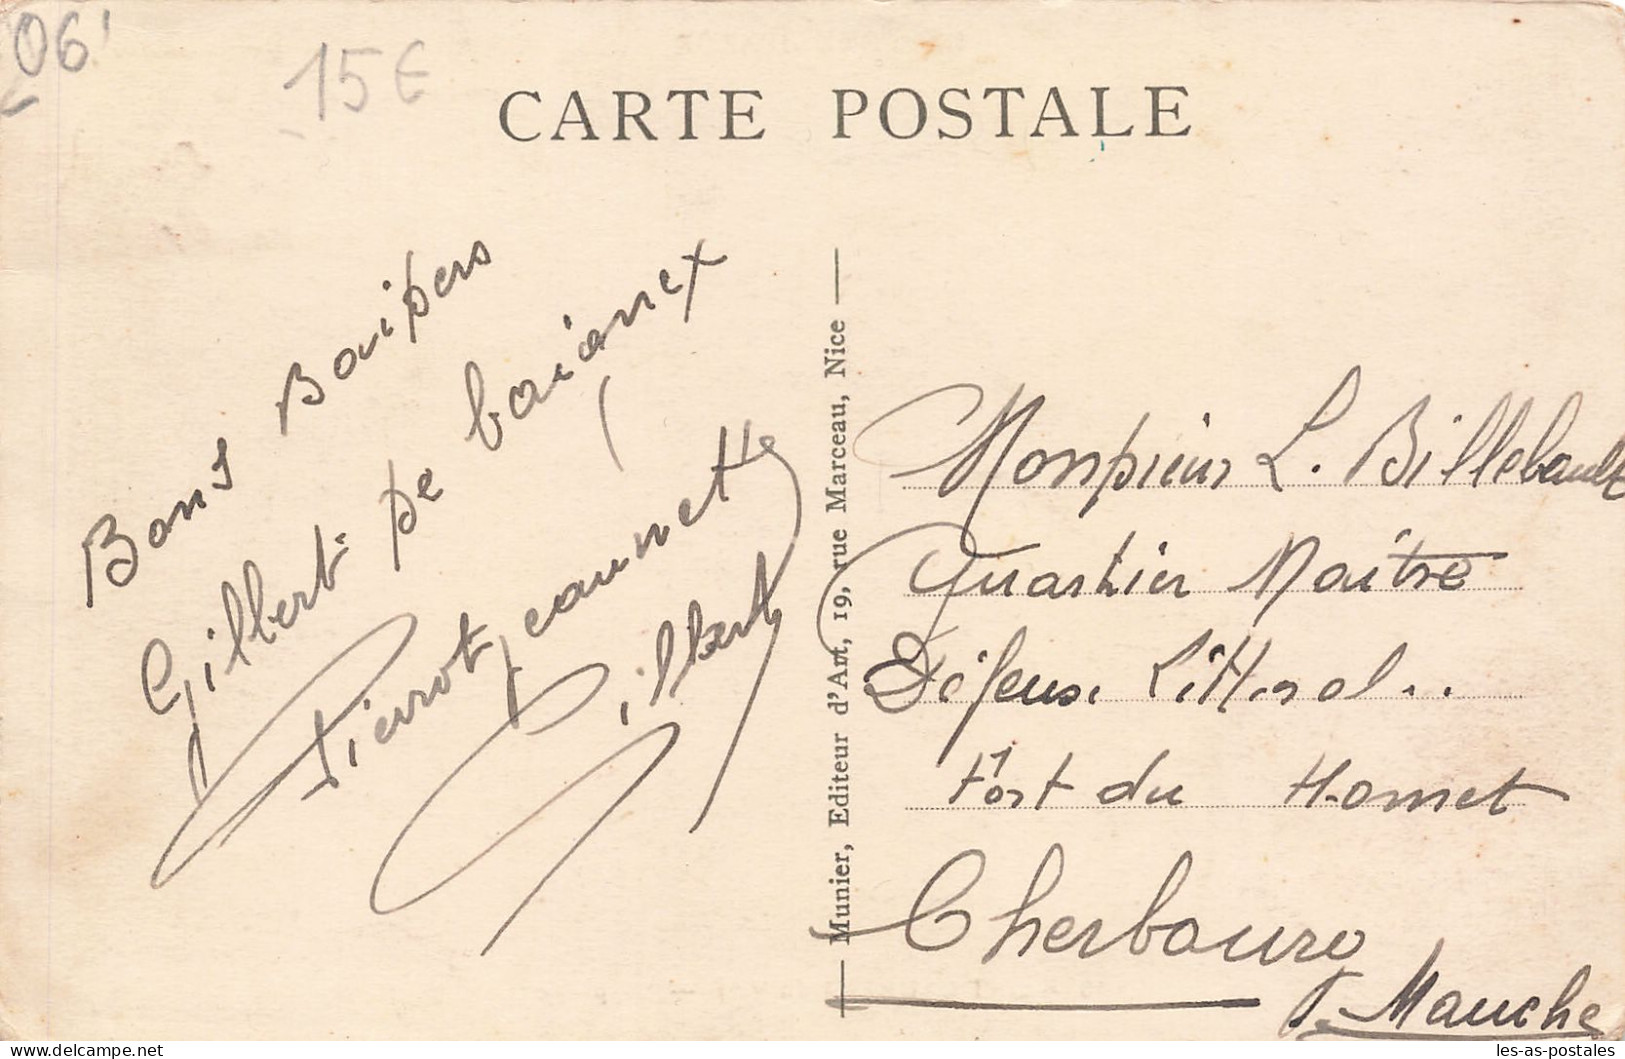 06
15€
CARTE POSTALE
Bons Baisers
Gilbert. de
Pierrot, Jeannette
Gilbert
Munier, Editeur d'Art, 19, rue Marceau, Nice
Monsieur L. Billebault
Quartier Maître
Défense Littoral..
Fort du Homet
Cherbourg
Manche
www.delcampe.net
les-as-postales